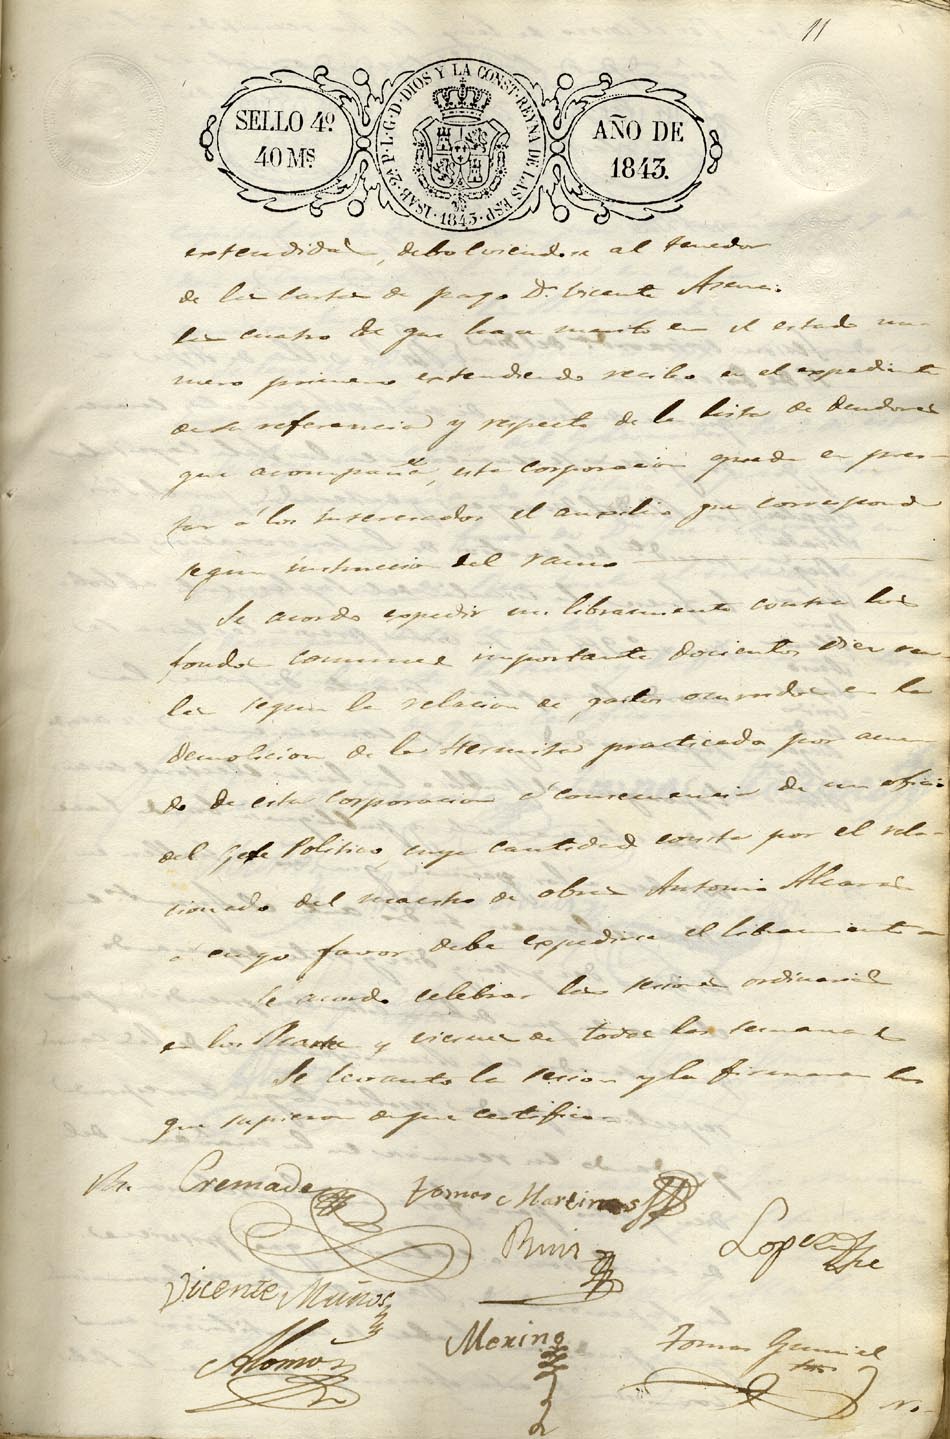 11
SELLO 4º
40 Ms.
ISAB. 2ª P. L. G. D. DIOS Y LA CONST. REYNA DE LAS ESP. 1843.
AÑO DE
1843.
extendida, debolviendose al tenedor
de la carta de pago Dn. Vicente
las cuatro de que hace merito en el estado nu-
mero primero extendiendo recibo en el expediente
de su referencia y respecto de la lista de deudores
que acompaña, esta corporacion queda en pres-
tar á los interesados el ausilio que corresponda
segun instruccion del ramo
Se acordo espedir un libramiento contra los
fondos comunes importante docientos diez rea-
les segun la relacion de gastos ocurridos en la
demolicion de la Hermita practicada por acuer-
do de esta corporacion á consecuencia de un oficio
del Gefe Politico, cuya cantidad consta por el rela-
cionado del maestro de obras Antonio Alcaras
á cuyo favor debe expedirse el libramiento
Se acordo celebrar las sesiones ordinarias
en los Martes y viernes de todas las semanas
Se levanto la sesion y la firmaron los
que supieron de que certifico
Cremades
Tomas Martines
Ruis
Lopez
Vicente Muños
Alomó
Merino
Tomas